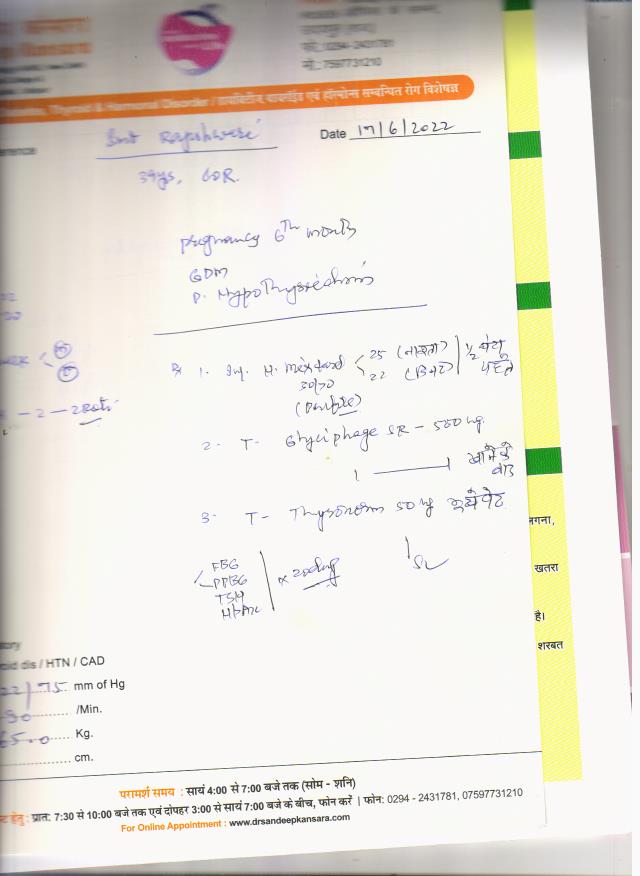 Kansara
फो.: 0294-2431781
मो.: 7597731210
Thyroid & Harmonal Disorder / डायबिटीज थायरॉईड एवं हॉरमोन्स सम्बन्धित रोग विशेषज्ञ
Smt Rajeshwari
Date 17/6/2022
39ys,
pregnancy 6th month
GDM
P. Hypothyroidism
Rx 1. Inj. H. Mixtard 25 (नाश्ता) 1/2 घंटे
30/70 22 (डिनर) पहले
2 - 2 Roti
2- T- Glyciphage SR - 500 mg.
1 1 खाने के
बाद
3- T- Thyronorm 50 ug खाली पेट
FBG
PPBG
TSH
लगना,
खतरा
है।
शरबत
dis / HTN / CAD
22/75 mm of Hg
/Min.
65.0 Kg.
cm.
परामर्श समय : सायं 4:00 से 7:00 बजे तक (सोम - शनि)
हेतु : प्रात: 7:30 से 10:00 बजे तक एवं दोपहर 3:00 से सायं 7:00 बजे के बीच, फोन करें | फोन: 0294 - 2431781, 07597731210
For Online Appointment : www.drsandeepkansara.com